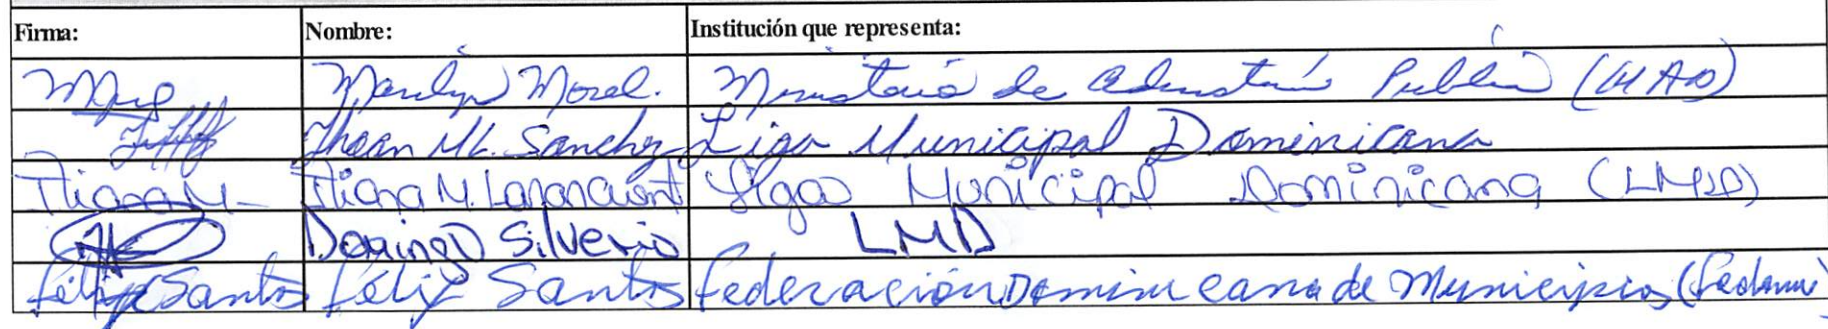 Firma: Nombre: Institución que representa:
Marilyn Morel. Ministerio de Administración Pública (MAP)
Jhoan Ml. Sanchez Liga Municipal Dominicana
Iliana M. Iliana M. Liga Municipal Dominicana (LMD)
Domingo Silverio LMD
Félix Santos Félix Santos Federación Dominicana de Municipios (Fedomu)